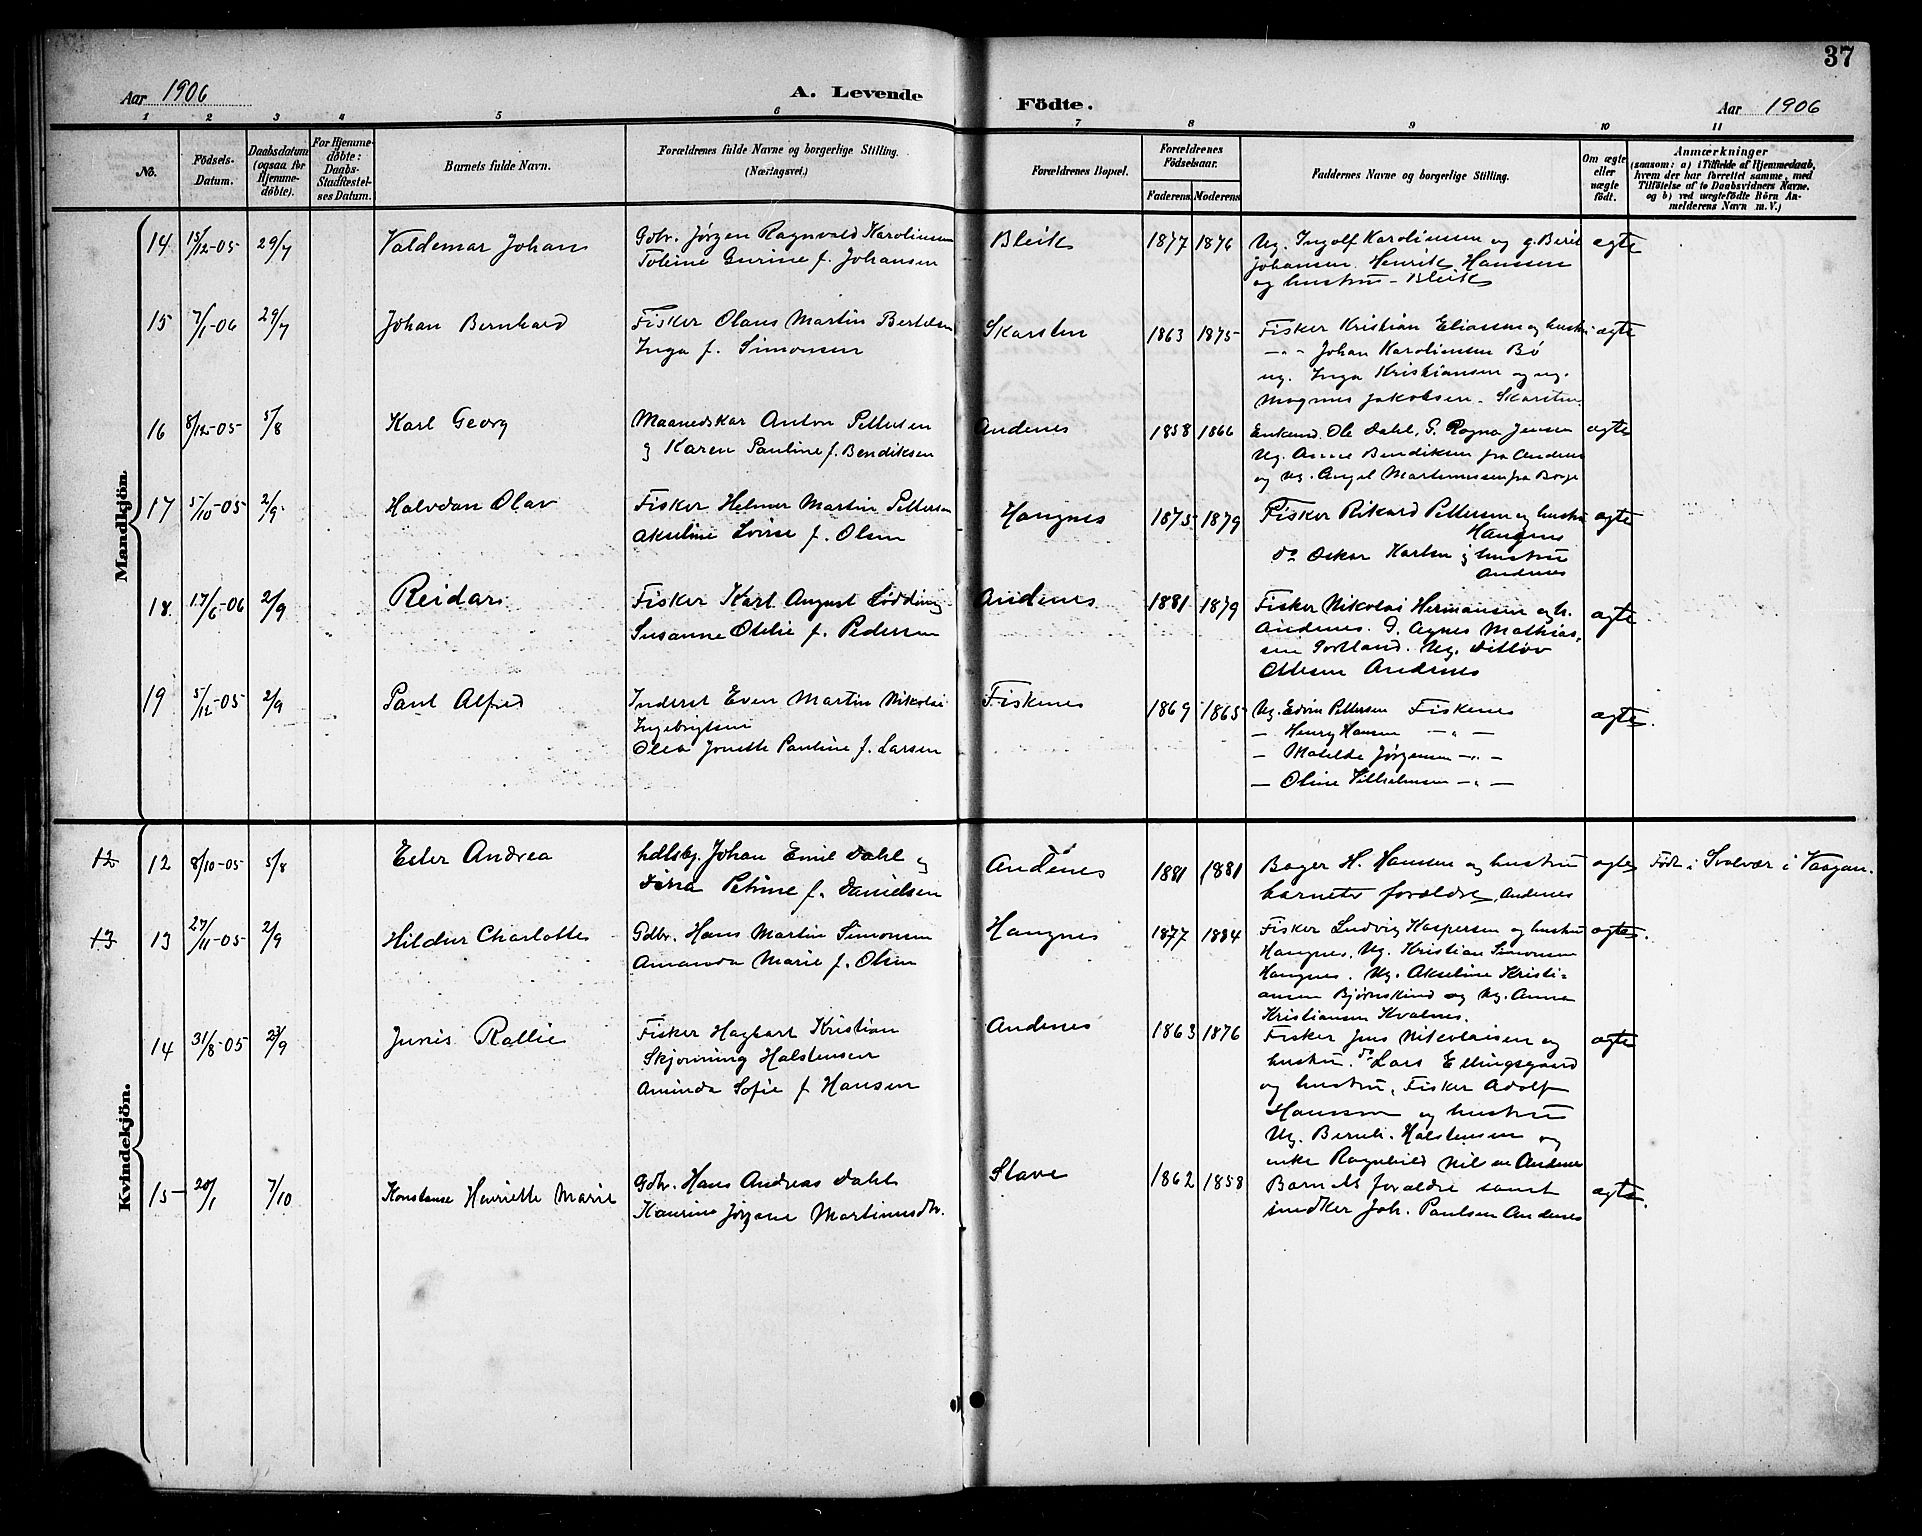 37
Aar 1906
A. Levende Födte.
Aar 1906
1 2 3 4 5 6 7 8 9 10 11
No.
Födsels-
Datum.
Daabsdatum
(ogsaa for
Hjemme-
döbte).
For Hjemme-
döbte:
Daabs-
Stadfæstel-
ses Datum.
Barnets fulde Navn.
Forældrenes fulde Navne og borgerlige Stilling.
(Næringsvei.)
Forældrenes Bopæl.
Forældrenes
Födselsaar.
Faderens
Moderens
Faddernes Navne og borgerlige Stilling.
Om ægte
eller
uægte
født.
Anmærkninger
(saasom: a) i Tilfælde af Hjemmedaab,
hvem der har forrettet samme, med
Tilføielse af to Daabsvidners Navne.
og b) ved uægtefödte Börn An-
melderens Navn m. V.)
Mandkjön.
14 15/12-05 29/7 Valdemar Johan
Gbr. Jørgen Ragnvald Karoliussen
Gurine f. Johansen
Bleik 1877 1876
Ug. Ingolf Karoliussen og g. Berit
Johansen. Henrik Hansen
og hustru - Bleik
ægte
15 7/1-06 29/7 Johan Bernhard
Fisker Olaus Martin Bertelsen
Inga f. Simonsen
Skarsten 1863 1875
Fisker Kristian Eliassen og hustru
-"- Johan Karoliussen Bø
ug. Inga Kristiansen og ug.
Magnus Jakobsen. Skarsten
ægte
16 8/12-05 5/8 Karl Georg
Maanedskar Anton Pettersen
og Karen Pauline f. Bendiksen
Andenes 1858 1866
Enkemd. Ole Dahl, G. Ragna Jensen
Ug. Anne Bendiksen fra Andenes
og ug. Angel Martinussen fra Borge
ægte
17 5/10-05 2/9 Halvdan Olav
Fisker Helmer Martin Pettersen
Akseline Lovise f. Olsen
Haugnes 1875 1879
Fisker Rikard Pettersen og hustru
Haugnes
do Oskar Karlsen og hustru
Andenes
ægte
18 17/6-06 2/9 Reidar
Fisker Karl August Lødding
Susanne Otelie f. Pedersen
Andenes 1881 1879
Fisker Nikolai Hermansen og h.
Andenes. G. Agnes Mathias-
sen Sortland. Ug. Ditlov
Ottesen Andenes
ægte
19 5/12-05 2/9 Paul Alfred
Inderst Even Martin Nikolai
Ingebrigtsen
Olea Jonette Pauline f. Larsen
Fiskenes 1869 1865
Ug. Edvin Pettersen Fiskenes
- Henry Hansen -"-
- Matelde Jørgensen -"-
- Oline Vilhelmsen -"-
ægte.
Kvindekjön.
12 12 8/10-05 5/8 Ester Andrea
hdlsbg. Johan Emil Dahl og
Petrine f. Danielsen
Andenes 1881 1881
Bager H. Hansen og hustru
barnets forældre, Andenes
ægte
Født i Svolvær i Vaagan.
13 13 27/11-05 2/9 Hildur Charlotte
Gdbr. Hans Martin Simonsen
Amanda Marie f. Olsen
Haugnes 1877 1884
Fisker Ludvig Kaspersen og hustru
Haugnes, Ug. Kristian Simonsen
Haugnes. Ug. Akseline Kristi-
ansen Bjørnskind og Ug. Anna
Kristiansen Kvalnes.
ægte.
14 31/8-05 23/9 Junis Rallie
Fisker Hagbart Kristian
Skjønning Halstensen
Aminda Sofie f Hansen
Andenes 1863 1876
Fisker Jens Nikolaisen og
hustru do Lars Ellingsgaard
og hustru, Fisker Adolf
Hansson og hustru
Ug. Bernh. Halstensen og
enke Ragnhild Andenes
ægte
15 20/1 7/10 Konstanse Henriette Marie
Gdbr. Hans Andreas Dahl
Kaurine Jørgine Martinusdtr.
Stave 1862 1858
Barnets forældre samt
snedker Joh. Paulsen Andenes
ægte.